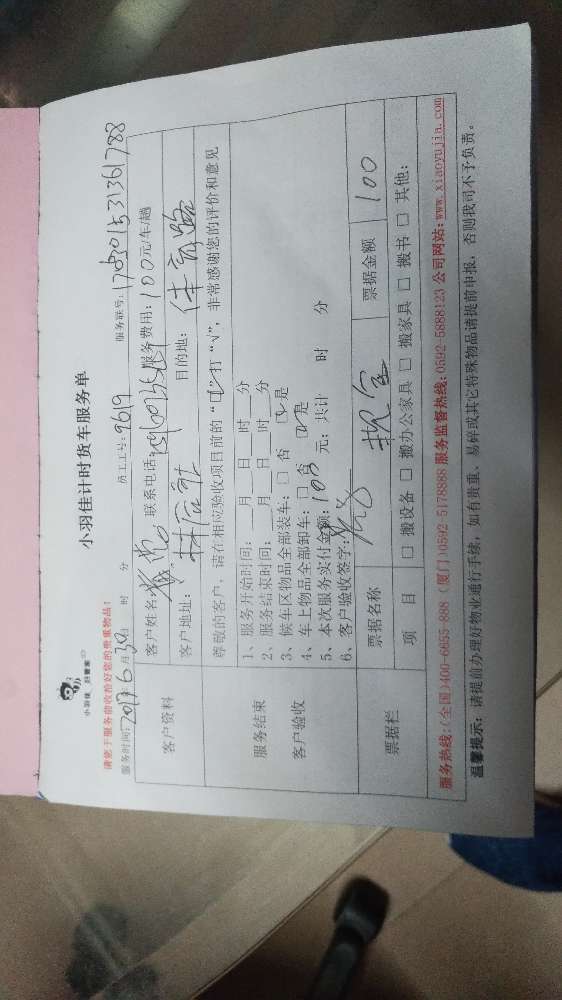 小羽佳 好管家
小羽佳计时货车服务单
请您于服务前收拾好您的贵重物品!
服务时间:2017年6月30日 时 分 员工工号:9619 服务联号:170301531361788
客户资料
客户姓名: 联系电话: 服务费用:100元/车/趟
客户地址: 目的地:体育路
尊敬的客户,请在相应验收项目前的“□”打“√”,非常感谢您的评价和意见
服务结束
客户验收
1、服务开始时间:___月___日___时___分
2、服务结束时间:___月___日___时___分
3、候车区物品全部装车:□ 否 ☑ 是
4、车上物品全部卸车:□ 否 ☑ 是
5、本次服务实付金额:100 元;共计 时 分
6、客户验收签字:
票据栏
票据名称 票据金额 100
项 目 □ 搬设备 □ 搬办公家具 □ 搬家具 □ 搬书 □ 其他:
服务热线:(全国)400-6655-888 (厦门)0592-5178888 服务监督热线:0592-5888123 公司网站:www.xiaoyujia.com
温馨提示:请提前办理好物业通行手续,如有贵重、易碎或其它特殊物品请提前申报,否则我司不予负责。